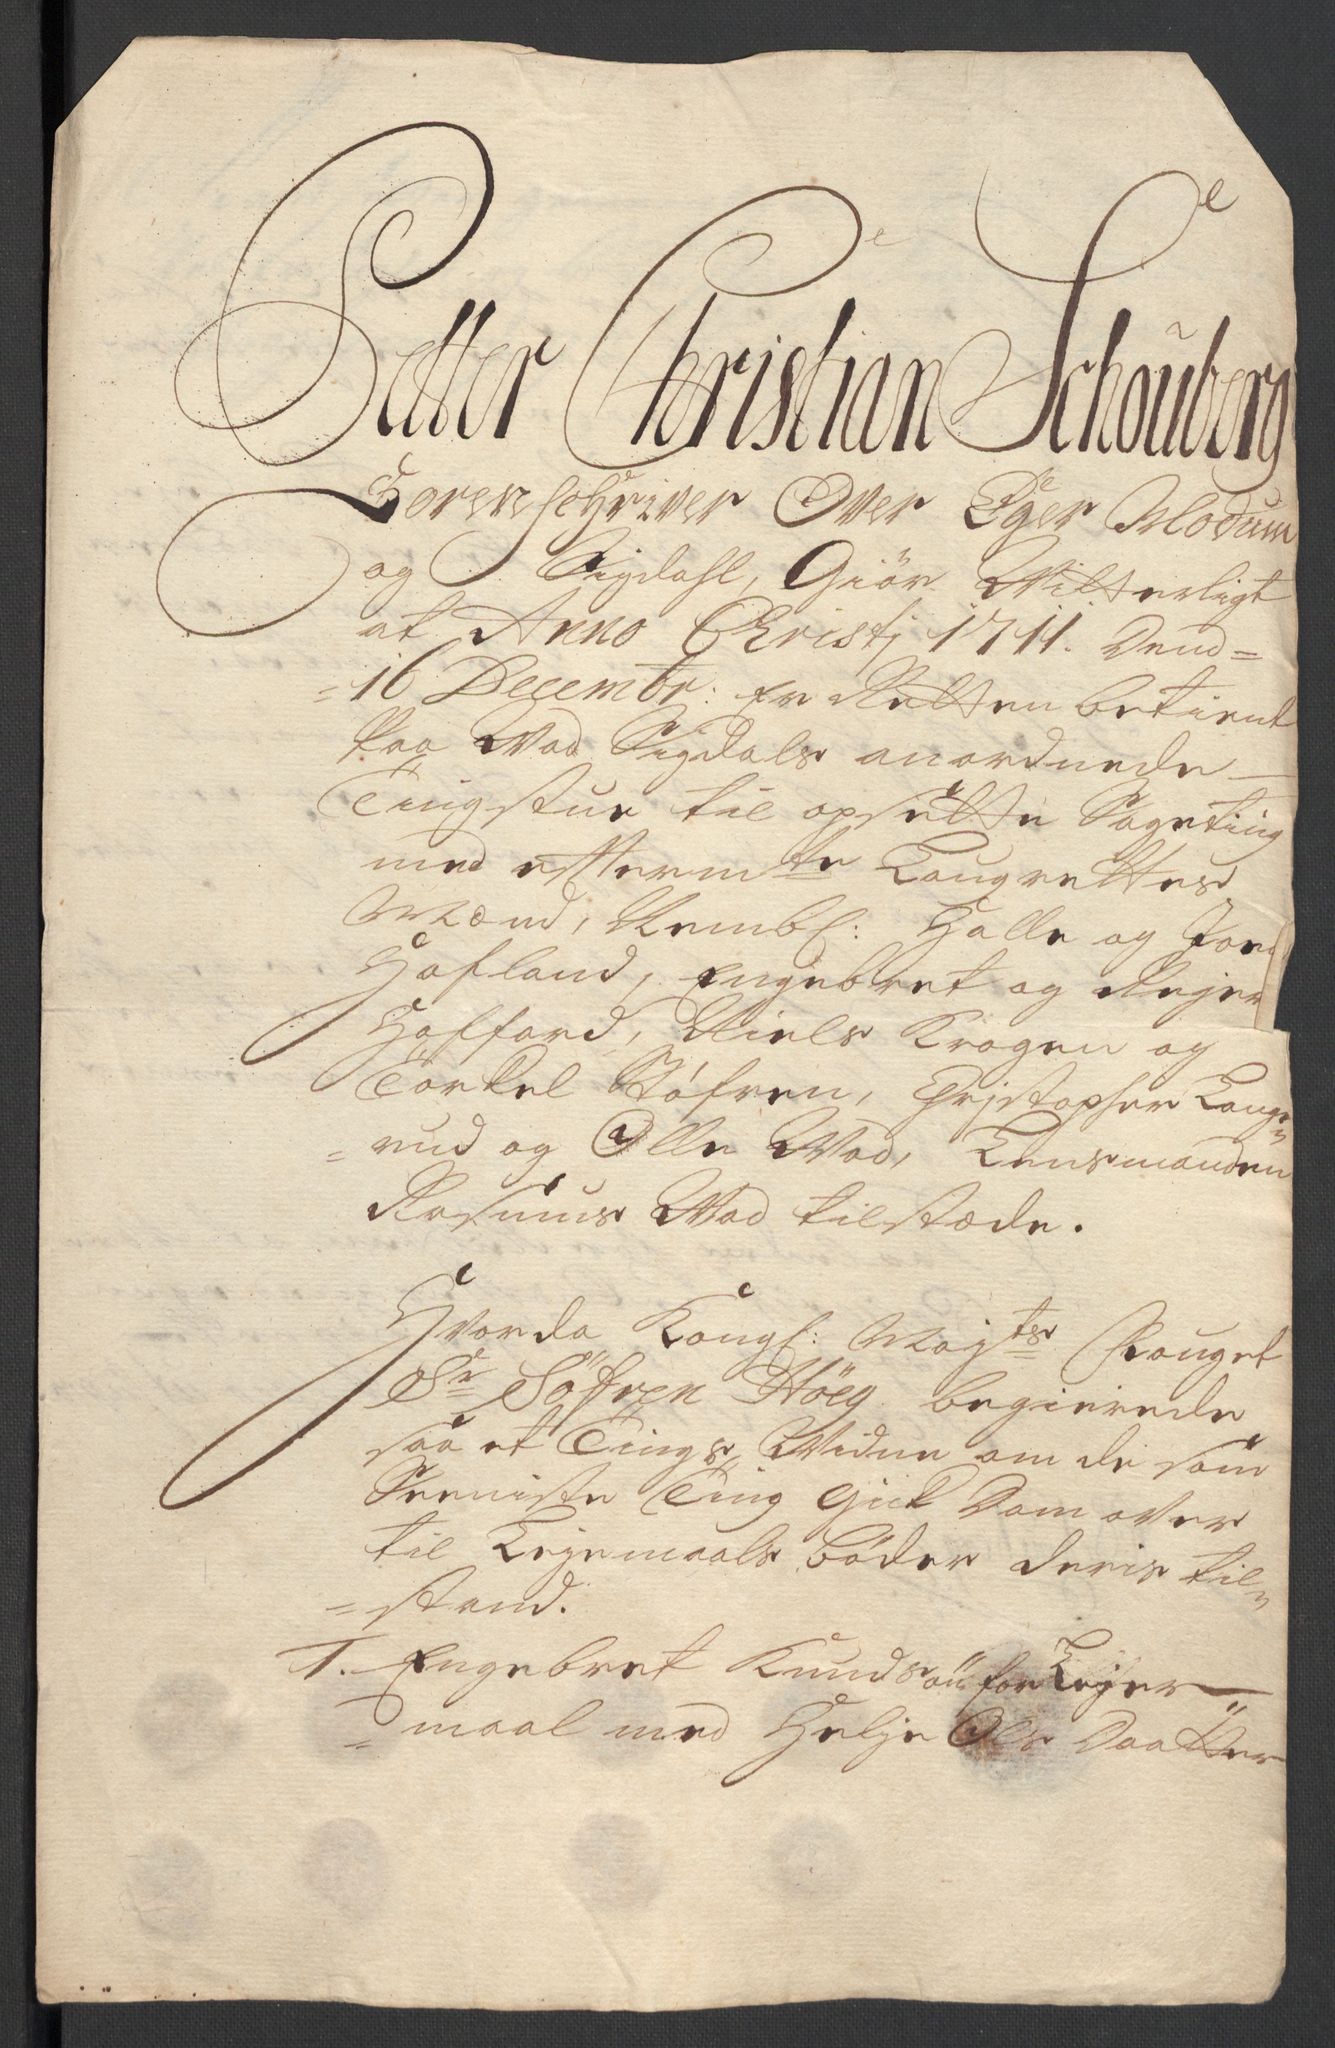 Petter Christian Schouberg
Sorenschriver Over Eger Modum
og Sigdahl, Giör Witterligt
at Anno Christj 1711. Dend=
=16 Decembr: er Retten betient
paa Wad Sigdals anordnede
Tingstue til opsette Sageting
med effterm:te Laugrettes
Mænd, Nembl: Halle og Joen
Hofland, Engebret og Rejer
Hoffard, Niels Krogen og
Torkel Støfren, Christopher Lange=
=rud og Olle Wad, Lensmanden
Rasmus Wad tilstæde.
Hvorda Kongl: May:ts Fouget
Sr Söfren Höeg begierede
saa et Tings Widne om de som
Seeniste Ting gick Dom over
til Lejermaals bøder deris til=
=stand.
1. Engebret Knudsön for Lejer=
=maal med Helje Ols Daatter